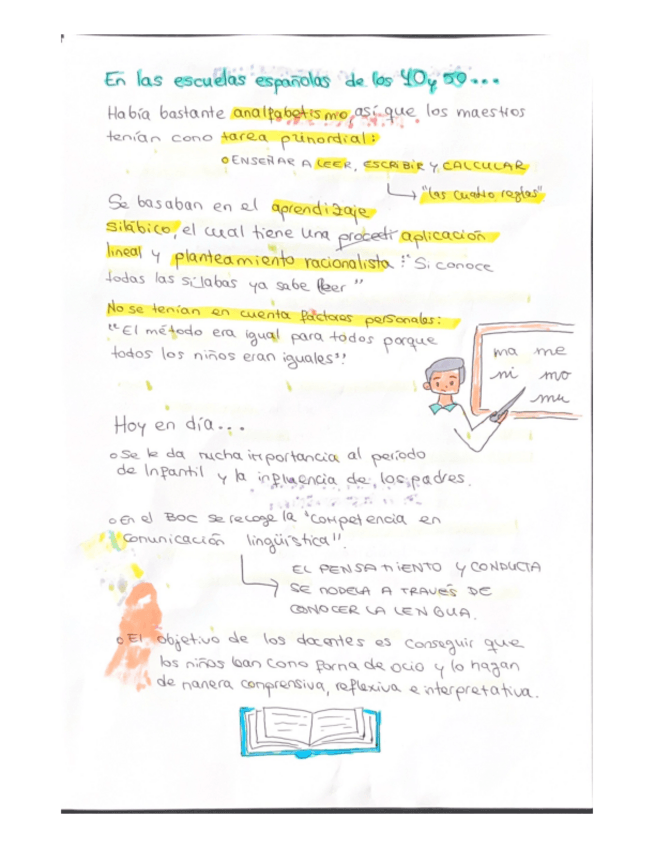 En las escuelas españolas de los 40 y 50...
Había bastante analfabetismo, así que los maestros
tenían como tarea primordial:
○ ENSEÑAR A LEER, ESCRIBIR Y CALCULAR
"las cuatro reglas"
Se basaban en el aprendizaje
silábico, el cual tiene una procedi aplicación
lineal y planteamiento racionalista: "Si conoce
todas las sílabas ya sabe leer"
No se tenían en cuenta factores personales:
"El método era igual para todos porque
todos los niños eran iguales".
ma me
ni mo
mu
Hoy en día...
○ Se le da mucha importancia al período
de Infantil y la influencia de los padres.
○ En el BOC se recoge la "competencia en
comunicación lingüística".
EL PENSAMIENTO Y CONDUCTA
SE MODELA A TRAVÉS DE
CONOCER LA LENGUA.
○ El objetivo de los docentes es conseguir que
los niños lean como forma de ocio y lo hagan
de manera comprensiva, reflexiva e interpretativa.